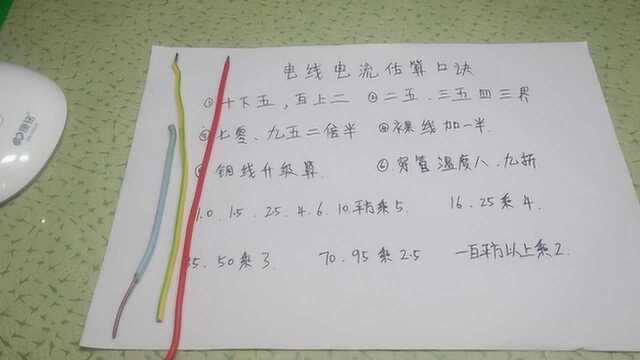 电线电流估算口诀
①十下五，百上二 ②二五、三五四三界
七零、九五二倍半 ④裸线加一半
铜线升级算 ⑥穿管温度八、九折
1.0 1.5 2.5 4. 6. 10.平方乘5. 16. 25乘4.
35. 50乘3 70. 95乘2.5 一百平方以上乘2.